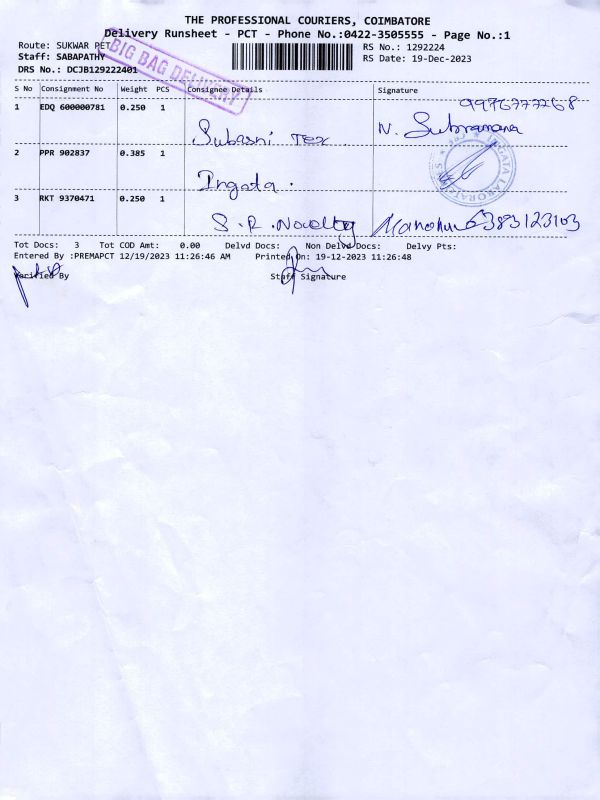 THE PROFESSIONAL COURIERS, COIMBATORE
Delivery Runsheet - PCT - Phone No.:0422-3505555 - Page No.:1
Route: SUKWAR PET
RS No.: 1292224
Staff: SABAPATHY
RS Date: 19-Dec-2023
DRS No.: DCJB129222401
BIG BAG DELIVERY
S No Consignment No Weight PCS Consignee Details Signature
1 EDQ 600000781 0.250 1
9976777268
Subasni Tex
N. Subramana
2 PPR 902837 0.385 1
Ingata.
INGATA LABORATORIES
3 RKT 9370471 0.250 1
S.R. Novelty 6383123103
Tot Docs: 3 Tot COD Amt: 0.00 Delvd Docs: Non Delvd Docs: Delvy Pts:
Entered By :PREMAPCT 12/19/2023 11:26:46 AM Printed On: 19-12-2023 11:26:48
Verified By Staff Signature